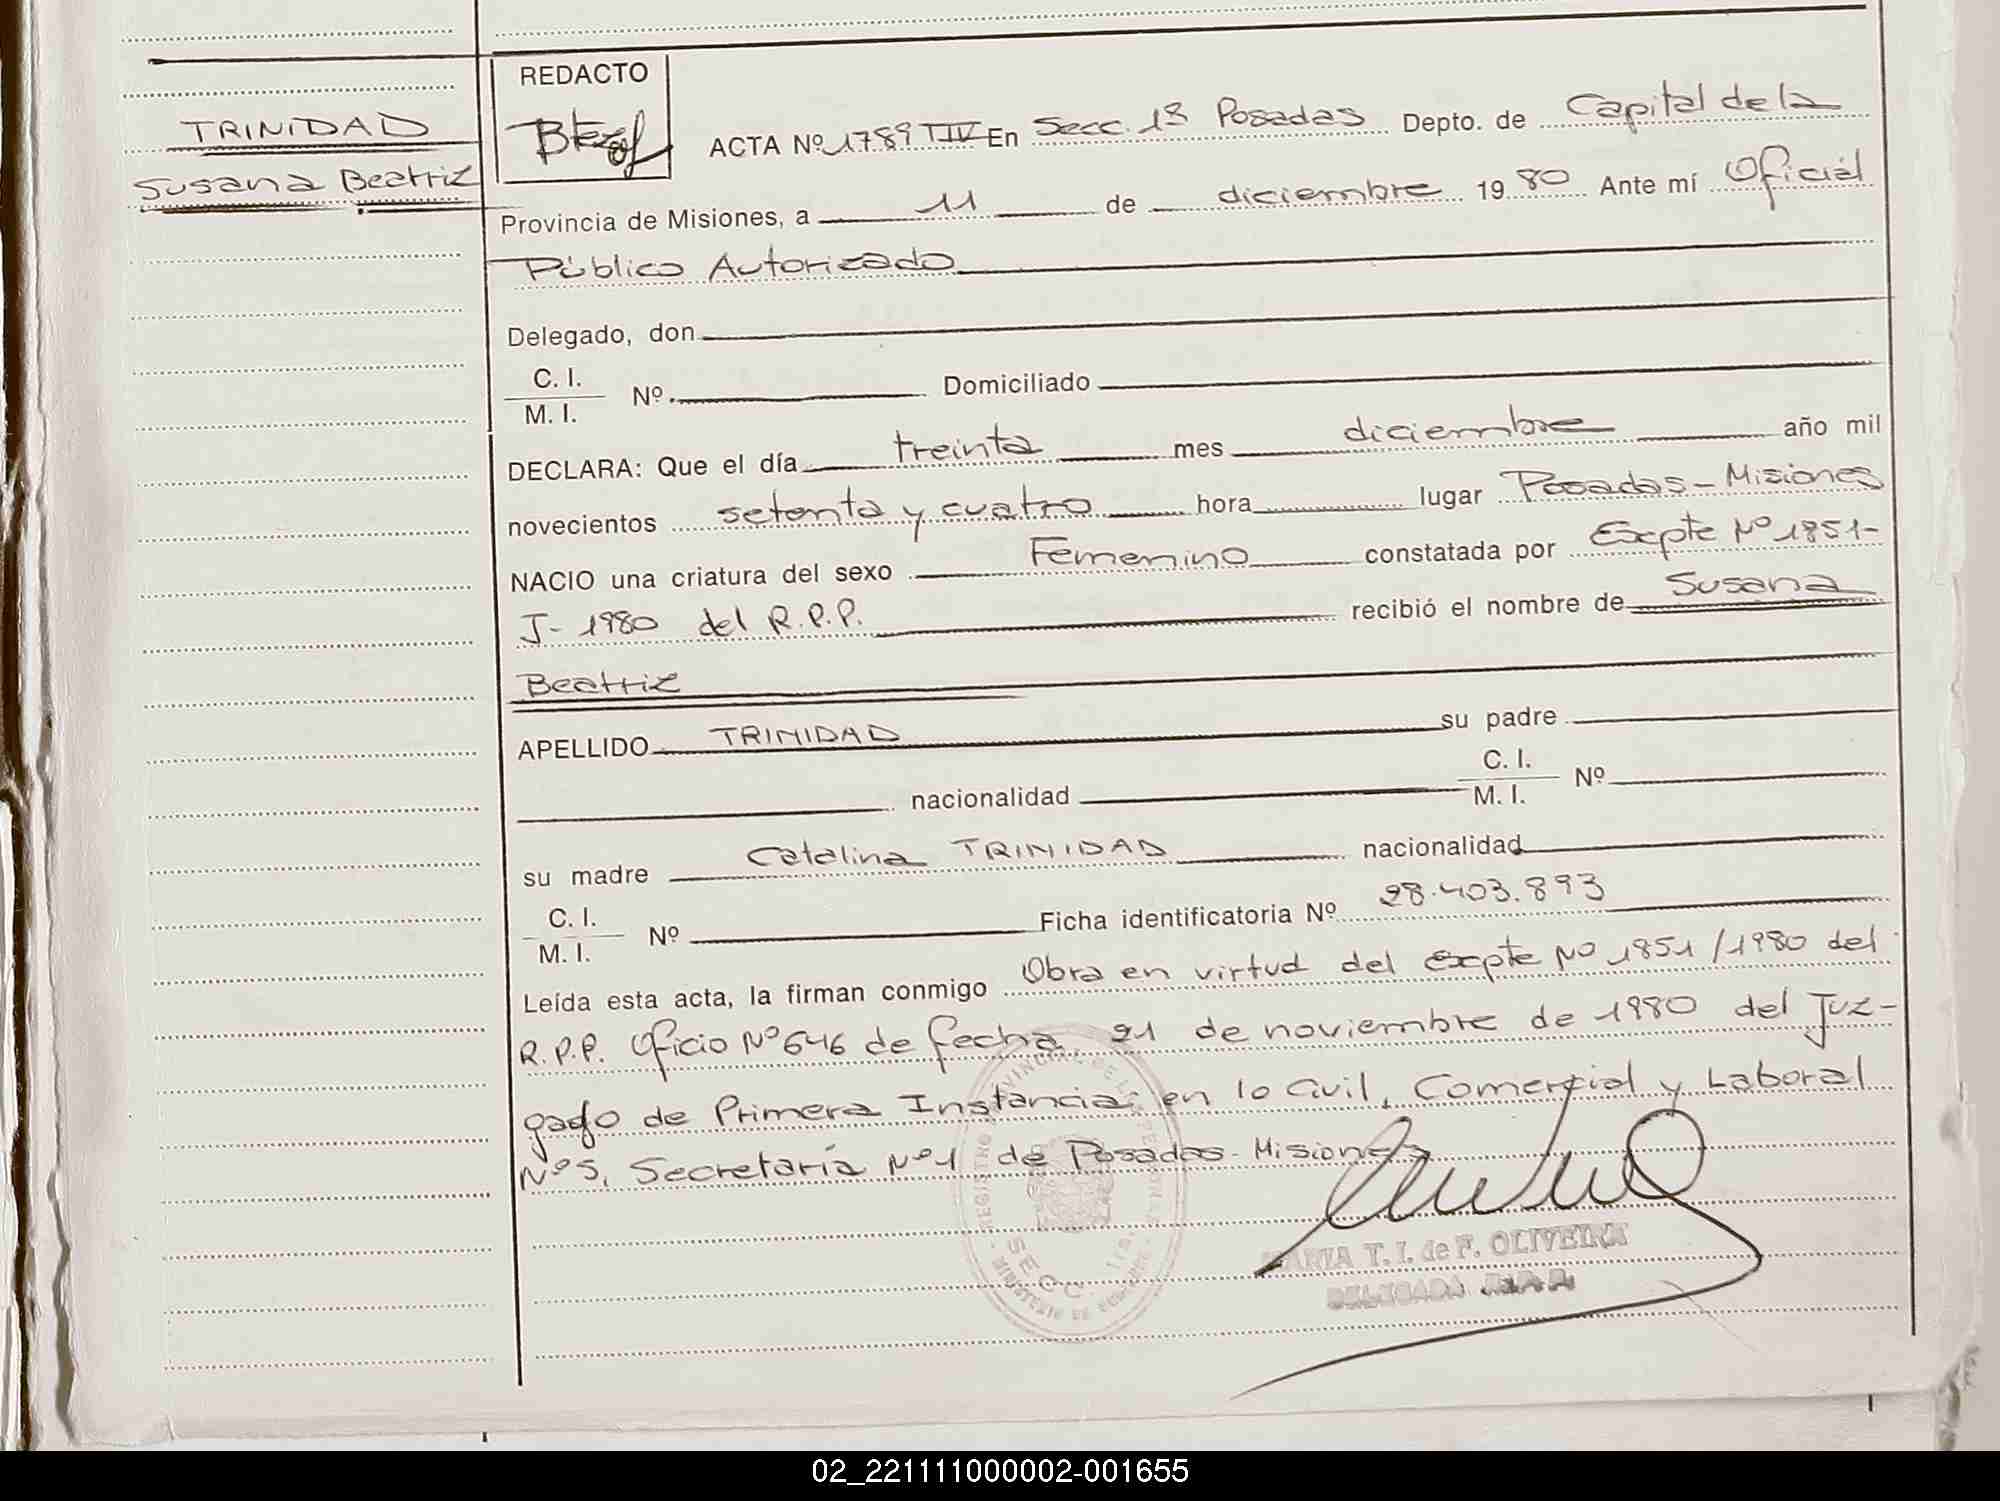 TRINIDAD
Susana Beatriz
REDACTO
ACTA Nº 1789 TIV En Secc. 1ª Posadas Depto. de Capital de la
Provincia de Misiones, a 11 de diciembre 1980 Ante mí Oficial
Público Autorizado
Delegado, don
C. I.
M. I. Nº Domiciliado
DECLARA: Que el día treinta mes diciembre año mil
novecientos setenta y cuatro hora lugar Posadas - Misiones
NACIO una criatura del sexo Femenino constatada por Expte Nº 1851-
J- 1980 del R.P.P. recibió el nombre de Susana
Beatriz
APELLIDO TRINIDAD su padre
nacionalidad C. I.
M. I. Nº
su madre Catalina TRINIDAD nacionalidad
C. I.
M. I. Nº Ficha identificatoria Nº 28.403.893
Leída esta acta, la firman conmigo Obra en virtud del Expte Nº 1851/1980 del
R.P.P. Oficio Nº 646 de fecha 21 de noviembre de 1980 del Juz-
gado de Primera Instancia en lo Civil, Comercial y Laboral
Nº 5, Secretaría Nº 1 de Posadas - Misiones
MARIA T. I. de F. OLIVEIRA
DELEGADA
SECC.
02_221111000002-001655